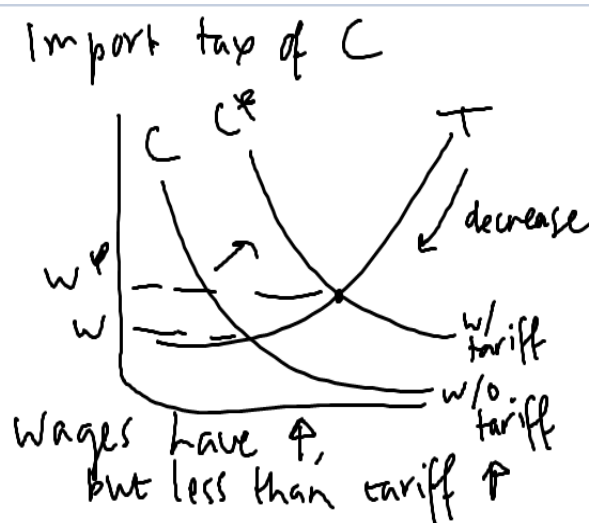 Import tax of C
C*
C
T
decrease
W*
W
w/
tariff
w/o
tariff
Wages have ↑,
but less than tariff ↑